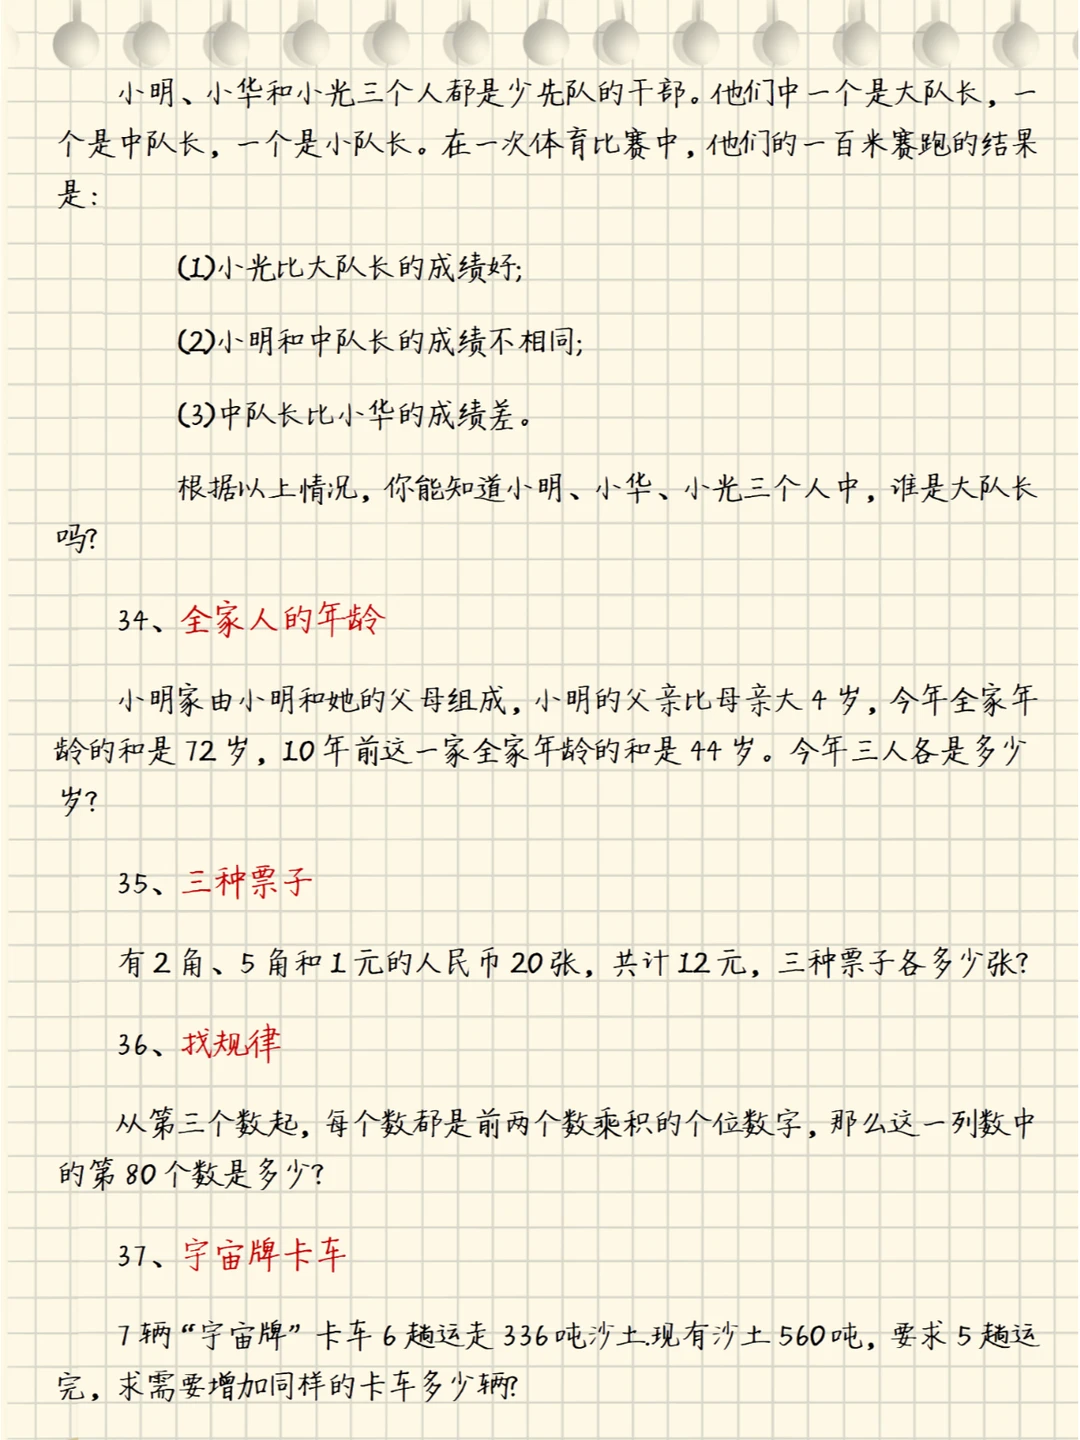 小明、小华和小光三个人都是少先队的干部。他们中一个是大队长，一
个是中队长，一个是小队长。在一次体育比赛中，他们的一百米赛跑的结果
是：
(1)小光比大队长的成绩好；
(2)小明和中队长的成绩不相同；
(3)中队长比小华的成绩差。
根据以上情况，你能知道小明、小华、小光三个人中，谁是大队长
吗？
34、全家人的年龄
小明家由小明和她的父母组成，小明的父亲比母亲大4岁，今年全家年
龄的和是72岁，10年前这一家全家年龄的和是44岁。今年三人各是多少
岁？
35、三种票子
有2角、5角和1元的人民币20张，共计12元，三种票子各多少张？
36、找规律
从第三个数起，每个数都是前两个数乘积的个位数字，那么这一列数中
的第80个数是多少？
37、宇宙牌卡车
7辆“宇宙牌”卡车6趟运走336吨沙土.现有沙土560吨，要求5趟运
完，求需要增加同样的卡车多少辆？